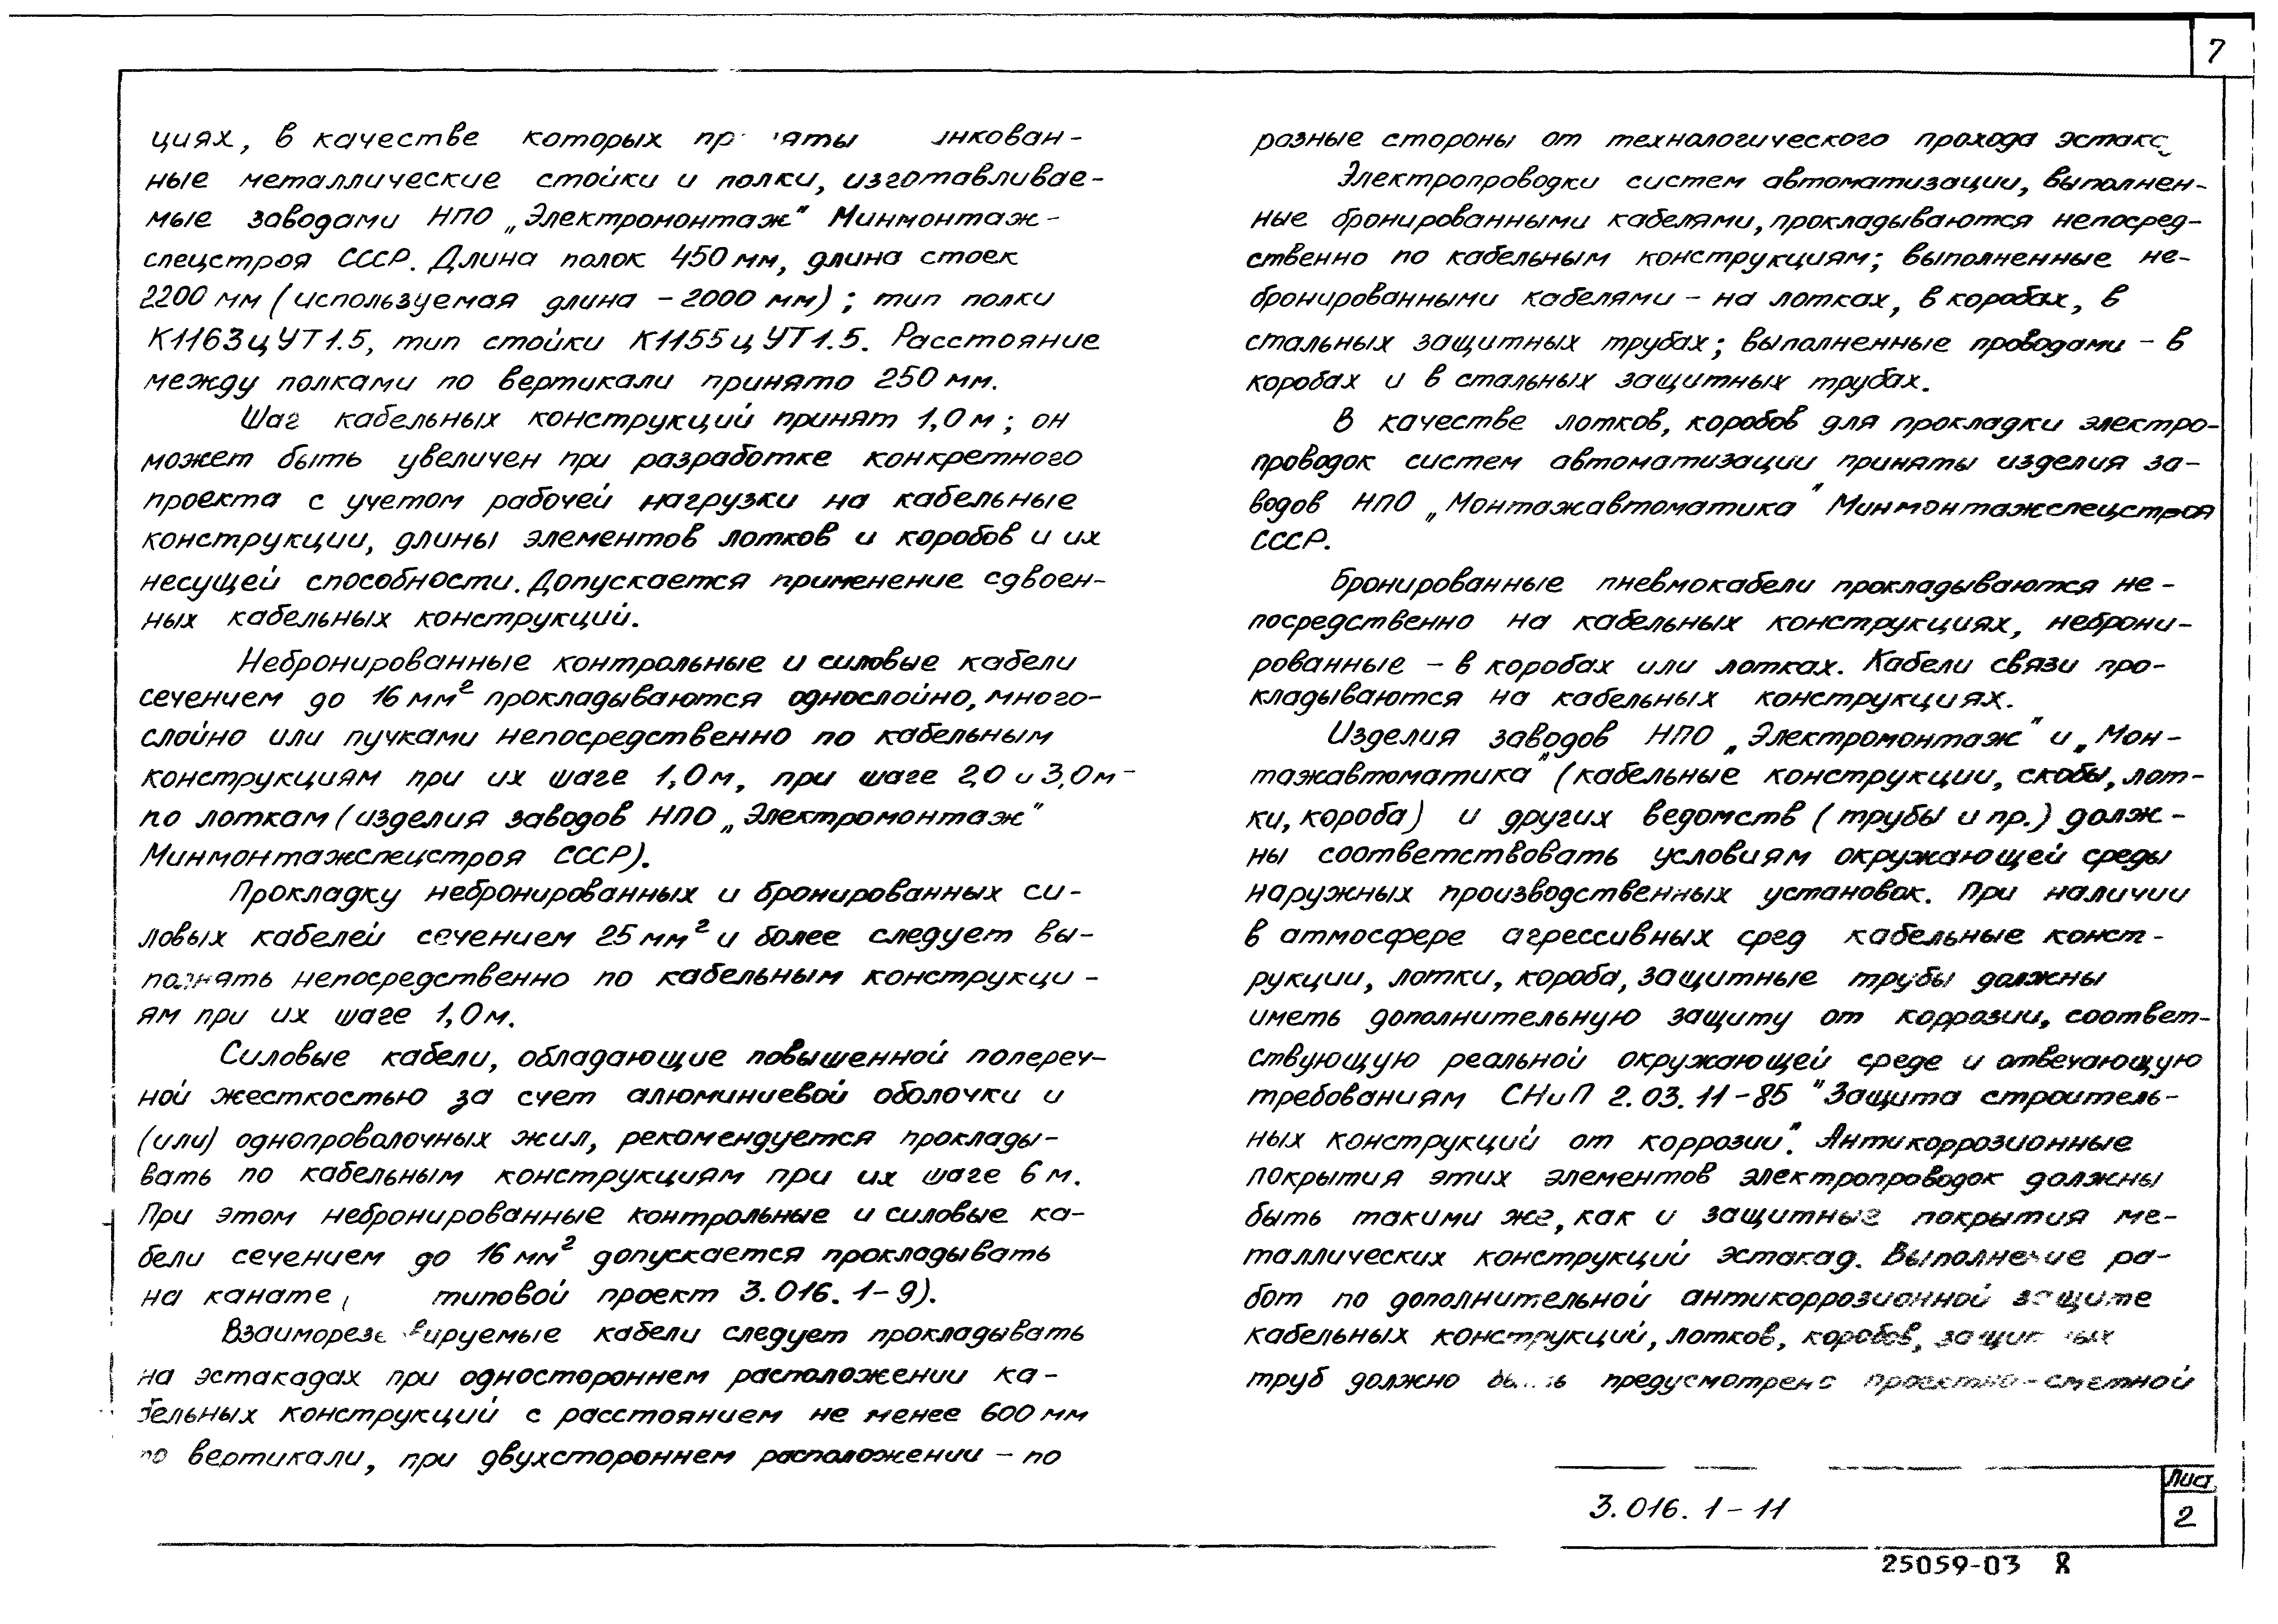 7
циях, в качестве которых
ные металлические стойки и полки, изготавливае-
мые заводами НПО „Электромонтаж" Минмонтаж-
спецстроя СССР. Длина полок 450 мм, длина стоек
2200 мм (используемая длина - 2000 мм); тип полки
К1163цУТ1.5, тип стойки К1155цУТ1.5. Расстояние
между полками по вертикали принято 250 мм.
Шаг кабельных конструкций принят 1,0 м; он
может быть увеличен при разработке конкретного
проекта с учетом рабочей нагрузки на кабельные
конструкции, длины элементов лотков и коробов и их
несущей способности. Допускается применение сдвоен-
ных кабельных конструкций.
Небронированные контрольные и силовые кабели
сечением до 16 мм² прокладываются однослойно, много-
слойно или пучками непосредственно по кабельным
конструкциям при их шаге 1,0м, при шаге 2,0 и 3,0м-
по лоткам (изделия заводов НПО „Электромонтаж"
Минмонтажспецстроя СССР).
Прокладку небронированных и бронированных си-
ловых кабелей сечением 25 мм² и более следует вы-
полнять непосредственно по кабельным конструкци-
ям при их шаге 1,0м.
Силовые кабели, обладающие повышенной попереч-
ной жесткостью за счет алюминиевой оболочки и
(или) однопроволочных жил, рекомендуется проклады-
вать по кабельным конструкциям при их шаге 6 м.
При этом небронированные контрольные и силовые ка-
бели сечением до 16 мм² допускается прокладывать
на канате типовой проект 3.016.1-9).
Взаиморезервируемые кабели следует прокладывать
на эстакадах при одностороннем расположении ка-
бельных конструкций с расстоянием не менее 600 мм
по вертикали, при двухстороннем расположении - по
разные стороны от технологического прохода
Электропроводки систем автоматизации, выполнен-
ные бронированными кабелями, прокладываются непосред-
ственно по кабельным конструкциям; выполненные не-
бронированными кабелями - на лотках, в коробах, в
стальных защитных трубах; выполненные проводами - в
коробах и в стальных защитных трубах.
В качестве лотков, коробов для прокладки электро-
проводок систем автоматизации приняты изделия за-
водов НПО „Монтажавтоматика" Минмонтажспецстроя
СССР.
Бронированные пневмокабели прокладываются не-
посредственно на кабельных конструкциях, неброни-
рованные - в коробах или лотках. Кабели связи про-
кладываются на кабельных конструкциях.
Изделия заводов НПО „Электромонтаж" и „Мон-
тажавтоматика" (кабельные конструкции, скобы, лот-
ки, короба) и других ведомств (трубы и пр.) долж-
ны соответствовать условиям окружающей среды
наружных производственных установок. При наличии
в атмосфере агрессивных сред кабельные конст-
рукции, лотки, короба, защитные трубы должны
иметь дополнительную защиту от коррозии, соответ-
ствующую реальной окружающей среде и отвечающую
требованиям СНиП 2.03.11-85 "Защита строитель-
ных конструкций от коррозии". Антикоррозионные
покрытия этих элементов электропроводок должны
быть такими же, как и защитные покрытия ме-
таллических конструкций эстакад. Выполнение ра-
бот по дополнительной антикоррозионной защите
кабельных конструкций, лотков, коробов, защитных
труб должно быть предусмотрено проектно-сметной
3.016.1-11
Лист
2
25059-03 8